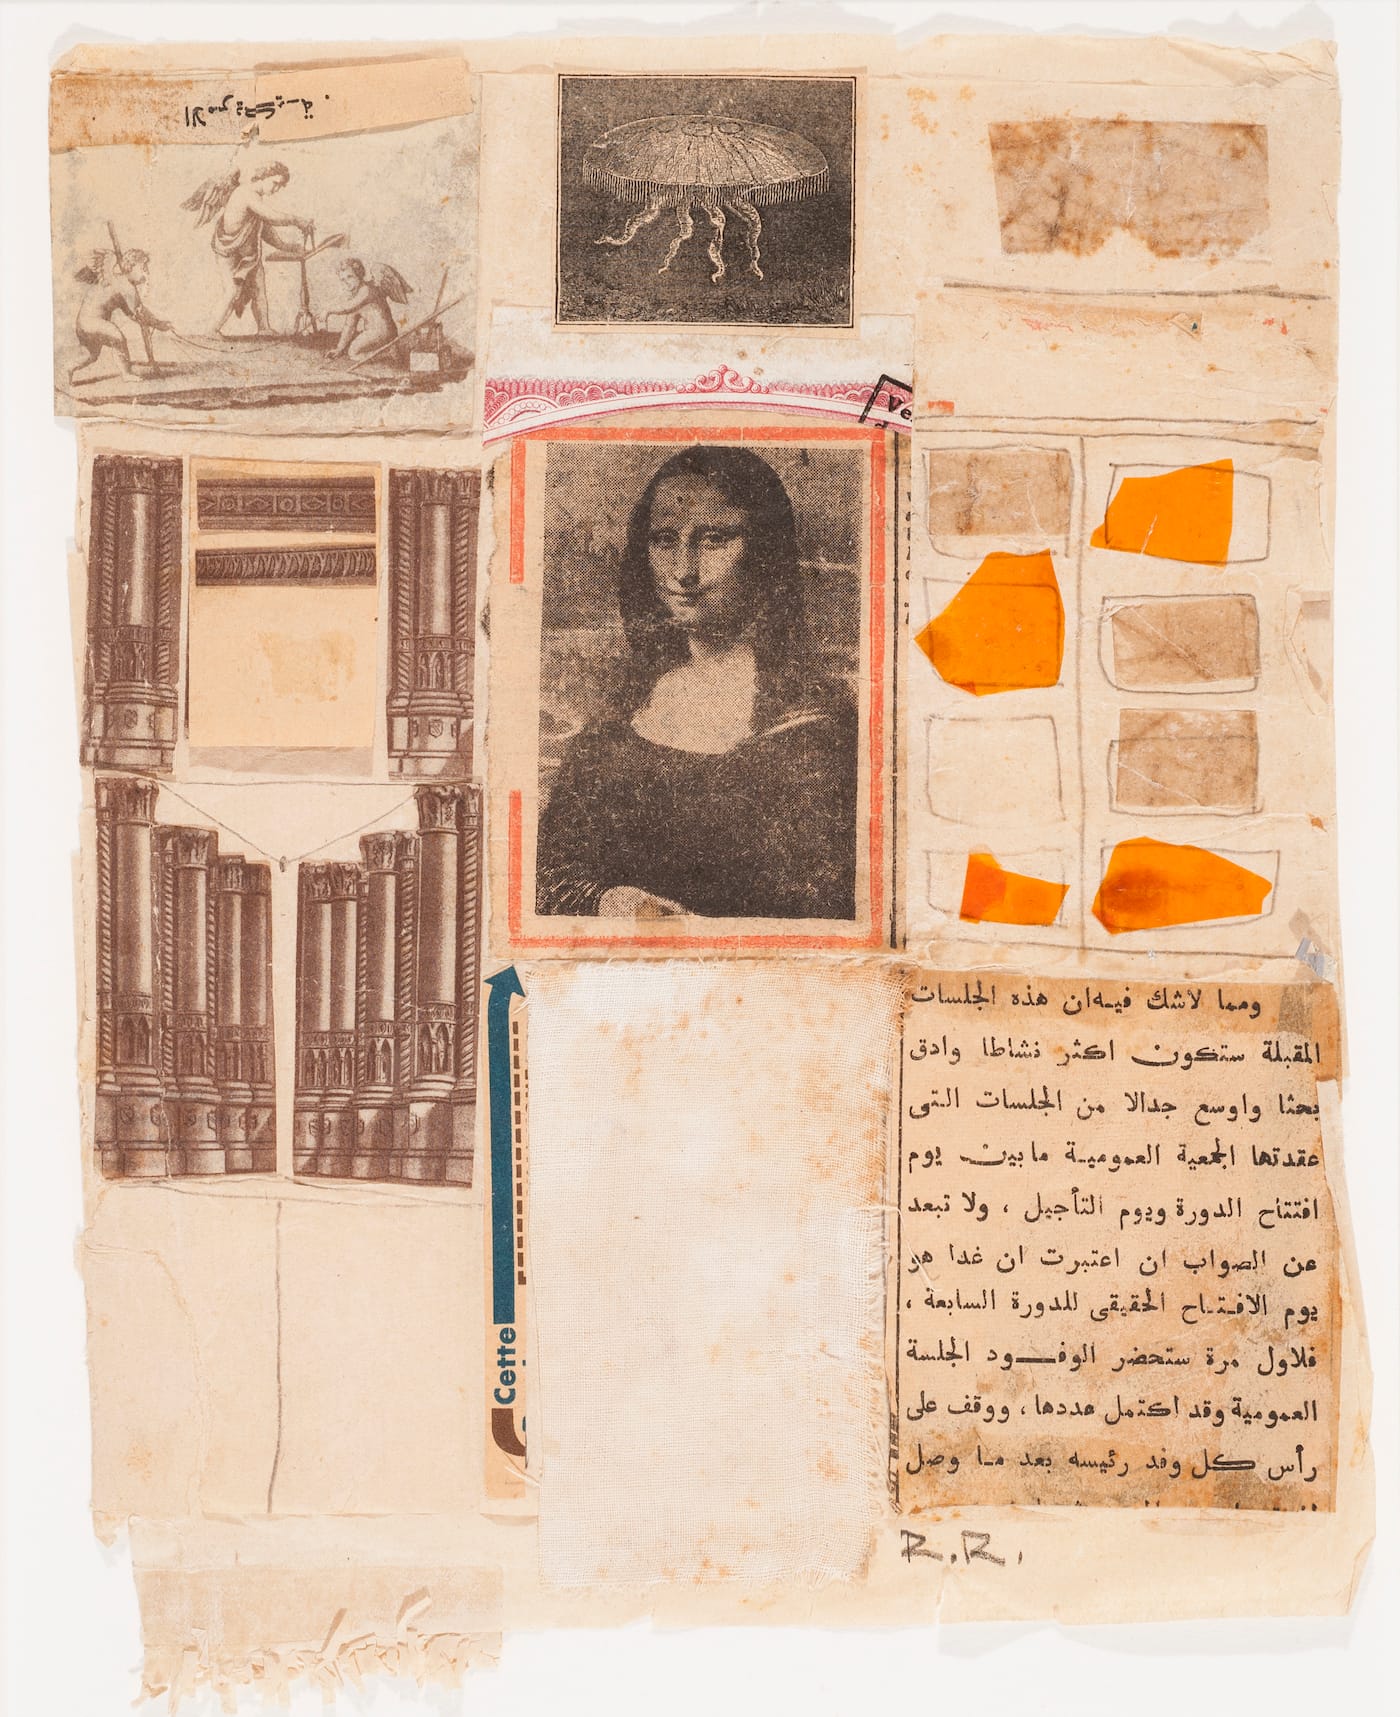 الاميركية.
Ve
ومما لاشك فيه ان هذه الجلسات
المقبلة ستكون اكثر نشاطا وادق
بحثا واوسع جدالا من الجلسات التى
عقدتها الجمعية العمومية مابين يوم
افتتاح الدورة ويوم التأجيل ، ولا تبعد
عن الصواب ان اعتبرت ان غدا هو
يوم الافتتاح الحقيقى للدورة السابعة ،
فلاول مرة ستحضر الوفود الجلسة
العمومية وقد اكتمل عددها ، ووقف على
رأس كل وفد رئيسه بعد ما وصل
Cette
R.R.